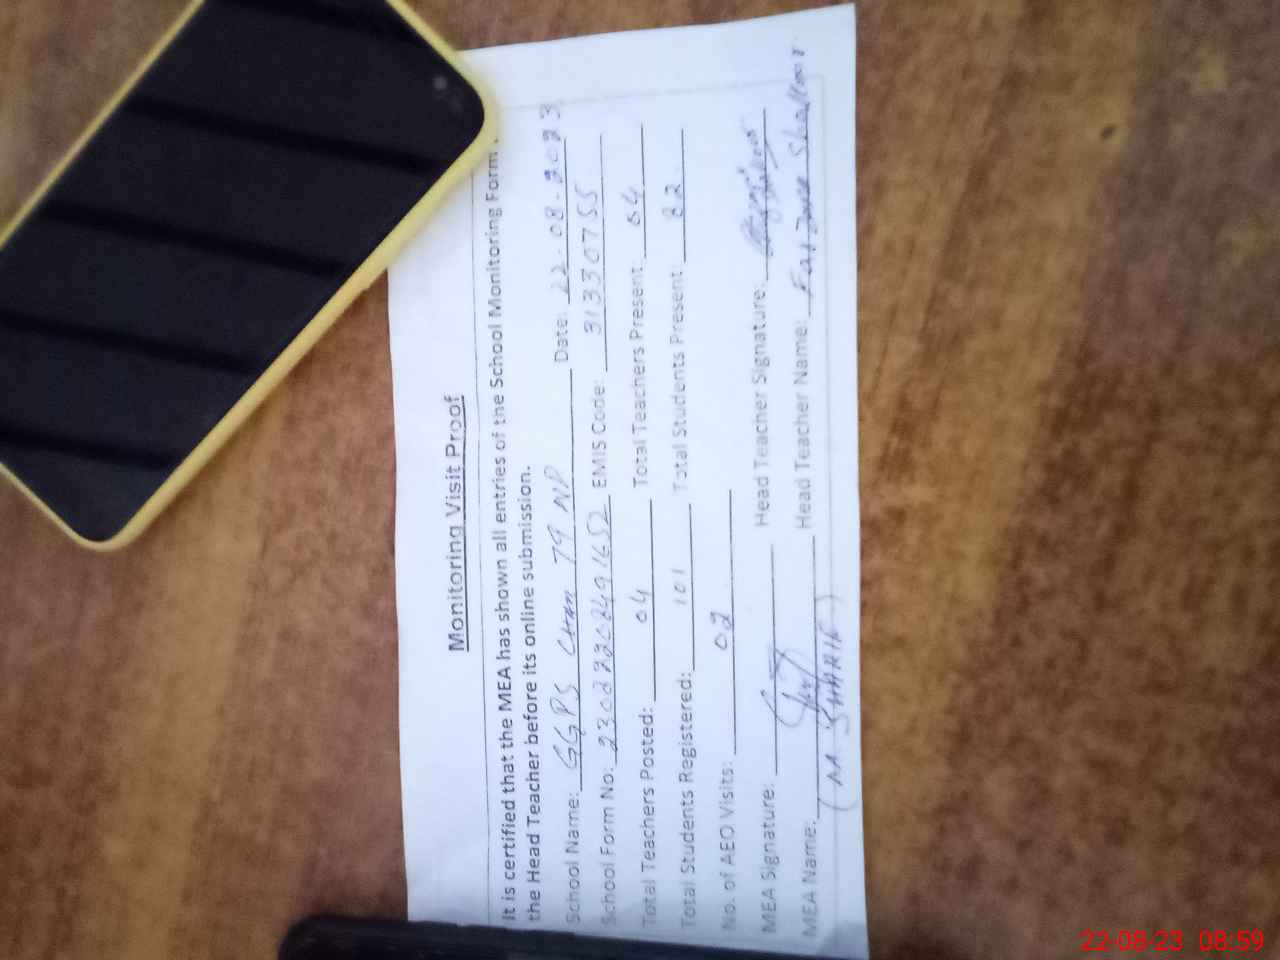 Monitoring Visit Proof
It is certified that the MEA has shown all entries of the School Monitoring Form
the Head Teacher before its online submission.
School Name: GGPS Chan 79 NP Date: 22-08-2023
School Form No: EMIS Code: 31330755
Total Teachers Posted: 04 Total Teachers Present: 04
Total Students Registered: 101 Total Students Present: 82
No. of AEO Visits: 02
MEA Signature: Head Teacher Signature:
MEA Name: (M. SHARIF) Head Teacher Name:
22-08-23 08:59